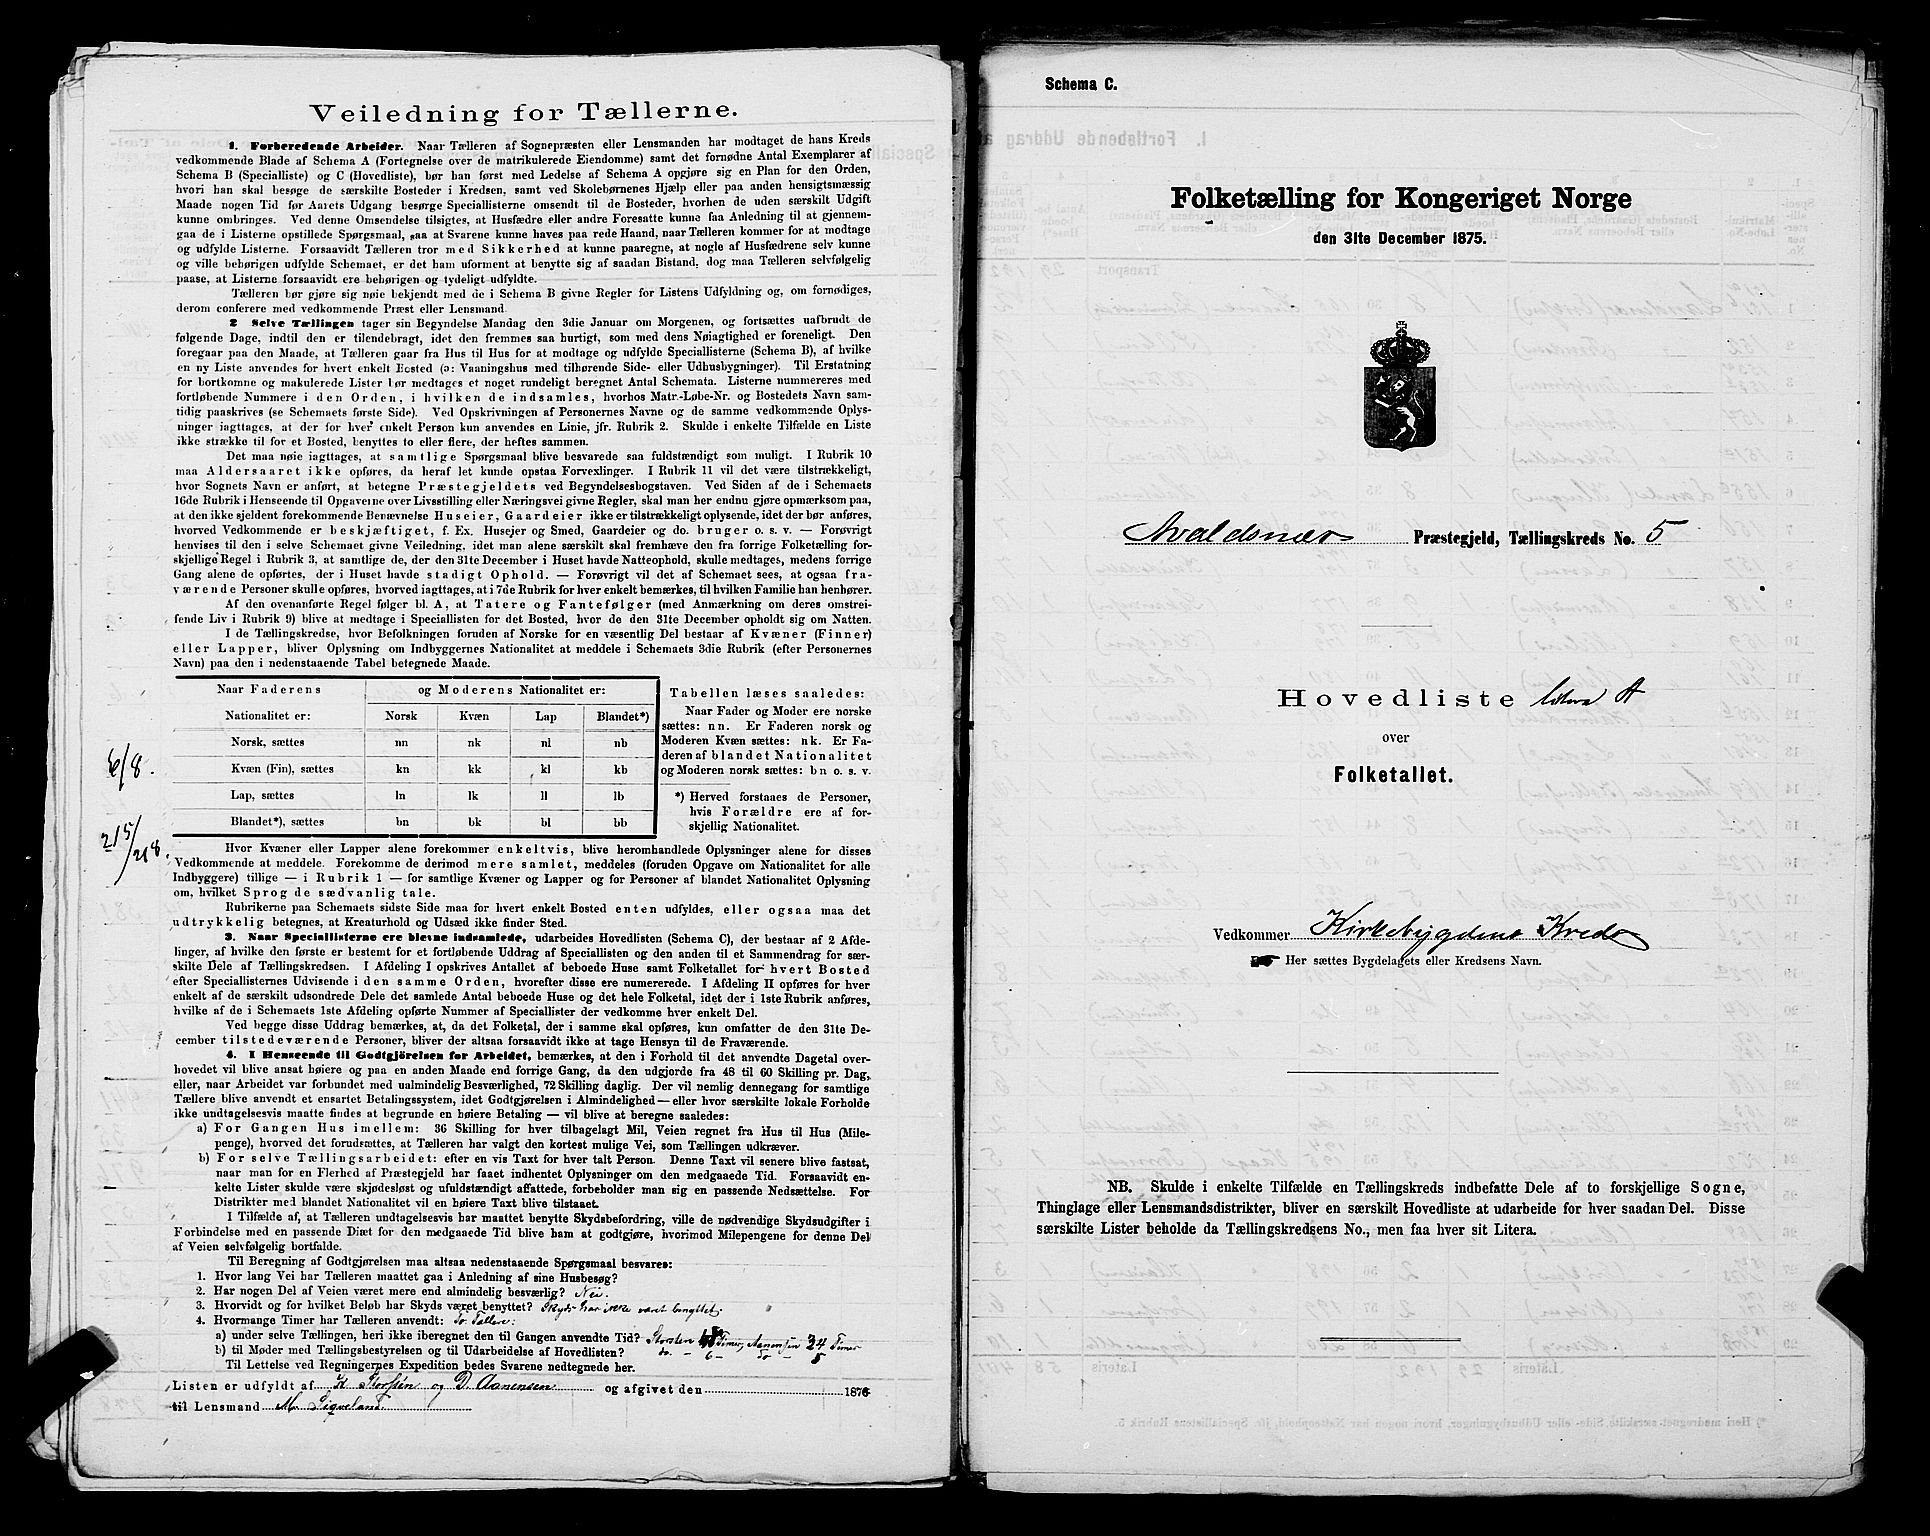 Veiledning for Tællerne.
1. Forberedende Arbeider. Naar Tælleren af Sognepræsten eller Lensmanden har modtaget de hans Kreds
vedkommende Blade af Schema A (Fortegnelse over de matrikulerede Eiendomme) samt det fornødne Antal Exemplarer af
Schema B (Specialliste) og C (Hovedliste), bør han først med Ledelse af Schema A opgjøre sig en Plan for den Orden,
hvori han skal besøge de særskilte Bosteder i Kredsen, samt ved Skolebørnenes Hjælp eller paa anden hensigtsmæssig
Maade nogen Tid før Aarets Udgang besørge Speciallisterne omsendt til de Bosteder, hvorhen de uden særskilt Udgift
kunne ombringes. Ved denne Omsendelse tilsigtes, at Husfædre eller andre Foresatte kunne faa Anledning til at gjennem-
gaa de i Listerne opstillede Spørgsmaal, saa at Svarene kunne haves paa rede Haand, naar Tælleren kommer for at modtage
og udfylde Listerne. Forsaavidt Tælleren tror med Sikkerhed at kunne paaregne, at nogle af Husfædrene selv kunne
og ville behørigen udfylde Schemaet, er det ham uforment at benytte sig af saadan Bistand, dog maa Tælleren selvfølgelig
paase, at Listerne forsaavidt ere behørigen og tydeligt udfyldte.
Tælleren bør gjøre sig nøie bekjendt med de i Schema B givne Regler for Listens Udfyldning og, om fornødiges,
derom conferere med vedkommende Præst eller Lensmand.
2 Selve Tællingen tager sin Begyndelse Mandag den 3die Januar om Morgenen, og fortsættes uafbrudt de
følgende Dage, indtil den er tilendebragt, idet den fremmes saa hurtigt, som med dens Nøiagtighed er foreneligt. Den
foregaar paa den Maade, at Tælleren gaar fra Hus til Hus for at modtage og udfylde Speciallisterne (Schema B), af hvilke
en ny Liste anvendes for hvert enkelt Bosted (ɔ: Vaaningshus med tilhørende Side- eller Udhusbygninger). Til Erstatning
for bortkomne og makulerede Lister bør medtages et noget rundeligt beregnet Antal Schemata. Listerne nummereres med
fortløbende Nummere i den Orden, i hvilken de indsamles, hvorhos Matr.-Løbe-Nr. og Bostedets Navn sam-
tidig paaskrives (se Schemaets første Side). Ved Opskrivningen af Personernes Navne og de samme vedkommende Oplys-
ninger iagttages, at der for hver enkelt Person kun anvendes en Linie, jfr. Rubrik 2. Skulde i enkelte Tilfælde en Liste
ikke strække til for et Bosted, benyttes to eller flere, der heftes sammen.
Det maa nøie iagttages, at samtlige Spørgsmaal blive besvarede saa fuldstændigt som muligt. I Rubrik 10
maa Aldersaaret ikke opføres, da heraf let kunde opstaa Forvexlinger. I Rubrik 11 vil det være tilstrækkeligt,
hvor Sognets Navn er anført, at betegne Præstegjeldets ved Begyndelsesbogstaven. Ved Siden af de i Schemaets
16de Rubrik i Henseende til Opgaverne over Livsstilling eller Næringsvei givne Regler, skal man her endnu gjøre opmærksom paa,
at den ikke sjeldent forekommende Benævnelse Huseier, Gaardeier ikke er tilstrækkeligt oplysende, idet der bør anføres,
hvorved Vedkommende er beskjæftiget, f. Ex. Husejer og Smed, Gaardeier og do. bruger o. s. v. — Forøvrigt
henvises til den i selve Schemaet givne Veiledning, idet man alene særskilt skal fremhæve den fra forrige Folketælling for-
skjellige Regel i Rubrik 3, at samtlige de, der den 31te December i Huset havde Natteophold, skulle medtages, medens forrige
Gang alene de opførtes, der i Huset havde stadigt Ophold. — Forøvrigt vil det af Schemaet sees, at ogsaa fra-
værende Personer skulle opføres, hvorved iagttages, at i 7de Rubrik for hver enkelt bemærkes, til hvilken Familie han henhører.
Af den ovenanførte Regel følger bl. A, at Tatere og Fantefølger (med Anmærkning om deres omstrei-
fende Liv i Rubrik 9) blive at medtage i Speciallisten for det Bosted, hvor de den 31te December opholdt sig om Natten.
I de Tællingskredse, hvor Befolkningen foruden af Norske for en væsentlig Del bestaar af Kvæner (Finner)
eller Lapper, bliver Oplysning om Indbyggernes Nationalitet at meddele i Schemaets 3die Rubrik (efter Personernes
Navn) paa den i nedenstaaende Tabel betegnede Maade.
Naar Faderens og Moderens Nationalitet er:
Nationalitet er: Norsk Kvæn Lap Blandet*)
Norsk, sættes nn nk nl nb
Kvæn (Fin), sættes kn kk kl kb
Lap, sættes ln lk ll lb
Blandet*), sættes bn bk bl bb
Tabellen læses saaledes:
Naar Fader og Moder ere norske
sættes: nn. Er Faderen norsk og
Moderen Kvæn sættes: nk. Er Fa-
deren af blandet Nationalitet
og Moderen norsk sættes: bn o. s. v.
*) Herved forstaaes de Personer,
hvis Forældre ere af for-
skjellig Nationalitet.
6/8.
215/218.
Hvor Kvæner eller Lapper alene forekommer enkeltvis, blive heromhandlede Oplysninger alene for disses
Vedkommende at meddele. Forekomme de derimod mere samlet, meddeles (foruden Opgave om Nationalitet for alle
Indbyggere) tillige — i Rubrik 1 — for samtlige Kvæner og Lapper og for Personer af blandet Nationalitet Oplysning
om, hvilket Sprog de sædvanlig tale.
Rubrikerne paa Schemaets sidste Side maa for hvert enkelt Bosted enten udfyldes, eller ogsaa maa det
udtrykkelig betegnes, at Kreaturhold og Udsæd ikke finder Sted.
3. Naar Speciallisterne ere blevne indsamlede, udarbeides Hovedlisten (Schema C), der bestaar af 2 Afde-
linger, af hvilke den første er bestemt for et fortløbende Uddrag af Speciallisten og den anden til et Sammendrag for sær-
skilte Dele af Tællingskredsen. I Afdeling I opskrives Antallet af beboede Huse samt Folketallet for hvert Bosted
efter Speciallisternes Udvisende i den samme Orden, hvorefter disse ere numererede. I Afdeling II opføres for hver
enkelt af de særskilt udsondrede Dele det samlede Antal beboede Huse og det hele Folketal, idet der i 1ste Rubrik anføres,
hvilke af de i Schemaets 1ste Afdeling opførte Nummer af Speciallister der vedkomme hver enkelt Del.
Ved begge disse Uddrag bemærkes, at, da det Folketal, der i samme skal opføres, kun omfatter de den 31te De-
cember tilstedeværende Personer, bliver der altsaa forsaavidt ikke at tage Hensyn til de Fraværende.
4. I Henseende til Godtgjörelsen for Arbeidet, bemærkes, at den i Forhold til det anvendte Dagetal over-
hovedet vil blive ansat høiere og paa en anden Maade end forrige Gang, da den udgjorde fra 48 til 60 Skilling pr. Dag,
eller, naar Arbeidet var forbundet med ualmindelig Besværlighed, 72 Skilling daglig. Der vil nemlig dennegang for samtlige
Tællere blive anvendt et ensartet Betalingssystem, idet Godtgjørelsen i Almindelighed — eller hvor særskilte lokale Forholde
ikke undtagelsesvis maatte findes at begrunde en høiere Betaling — vil blive at beregne saaledes:
a) For Gangen Hus imellem: 36 Skilling for hver tilbagelagt Mil, Veien regnet fra Hus til Hus (Mile-
penge), hvorved det forudsættes, at Tælleren har valgt den kortest mulige Vei, som Tællingen udkræver.
b) For selve Tællingsarbeidet: efter en vis Taxt for hver talt Person. Denne Taxt vil senere blive fastsat,
naar man for en Flerhed af Præstegjeld har faaet indhentet Oplysninger om den medgaaede Tid. Forsaavidt en-
kelte Lister skulde være skjødesløst og ufuldstændigt affattede, forbeholder man sig en passende Nedsættelse. For
Distrikter med blandet Nationalitet vil en høiere Taxt blive tilstaaet.
I Tilfælde af, at Tælleren undtagelsesvis har maattet benytte Skydsbefordring, ville de nødvendige Skydsudgifter i
Forbindelse med en passende Diæt for den medgaaede Tid blive ham at godtgjøre, hvorimod Milepengene for denne Del
af Veien selvfølgelig bortfalde.
Til Beregning af Godtgjørelsen blive altsaa nedenstaaende Spørgsmaal besvares:
1. Hvor lang Vei har Tælleren maattet gaa i Anledning af sine Husbesøg?
2. Har nogen Del af Veien været mere end almindelig besværlig? Nei.
3. Hvorvidt og for hvilket Beløb har Skyds været benyttet? Skyds har ikke været benyttet.
4. Hvormange Timer har Tælleren anvendt: To Tællere:
a) under selve Tællingen, heri ikke iberegnet den til Gangen anvendte Tid? Storsten Timer, Aanensen 24 Timer
b) til Møder med Tællingsbestyrelsen og til Udarbeidelse af Hovedlisten? do. - 6 - do - 5
Til Lettelse ved Regningernes Expedition bedes Svarene nedtegnede her.
Listen er udfyldt af K Storsten og D. Aanensen og afgivet den 1876
til Lensmand M. Sigveland.
Schema C.
Folketælling for Kongeriget Norge
den 31te December 1875.
Avaldsnæs Præstegjeld, Tællingskreds No. 5
Hovedliste Litera A
over
Folketallet.
Vedkommer Kirkebygdens Kreds
Her sættes Bygdelagets eller Kredsens Navn.
NB. Skulde i enkelte Tilfælde en Tællingskreds indbefatte Dele af to forskjellige Sogne,
Thinglage eller Lensmandsdistrikter, bliver en særskilt Hovedliste at udarbeide for hver saadan Del. Disse
særskilte Lister beholde da Tællingskredsens No., men faa hver sit Litera.